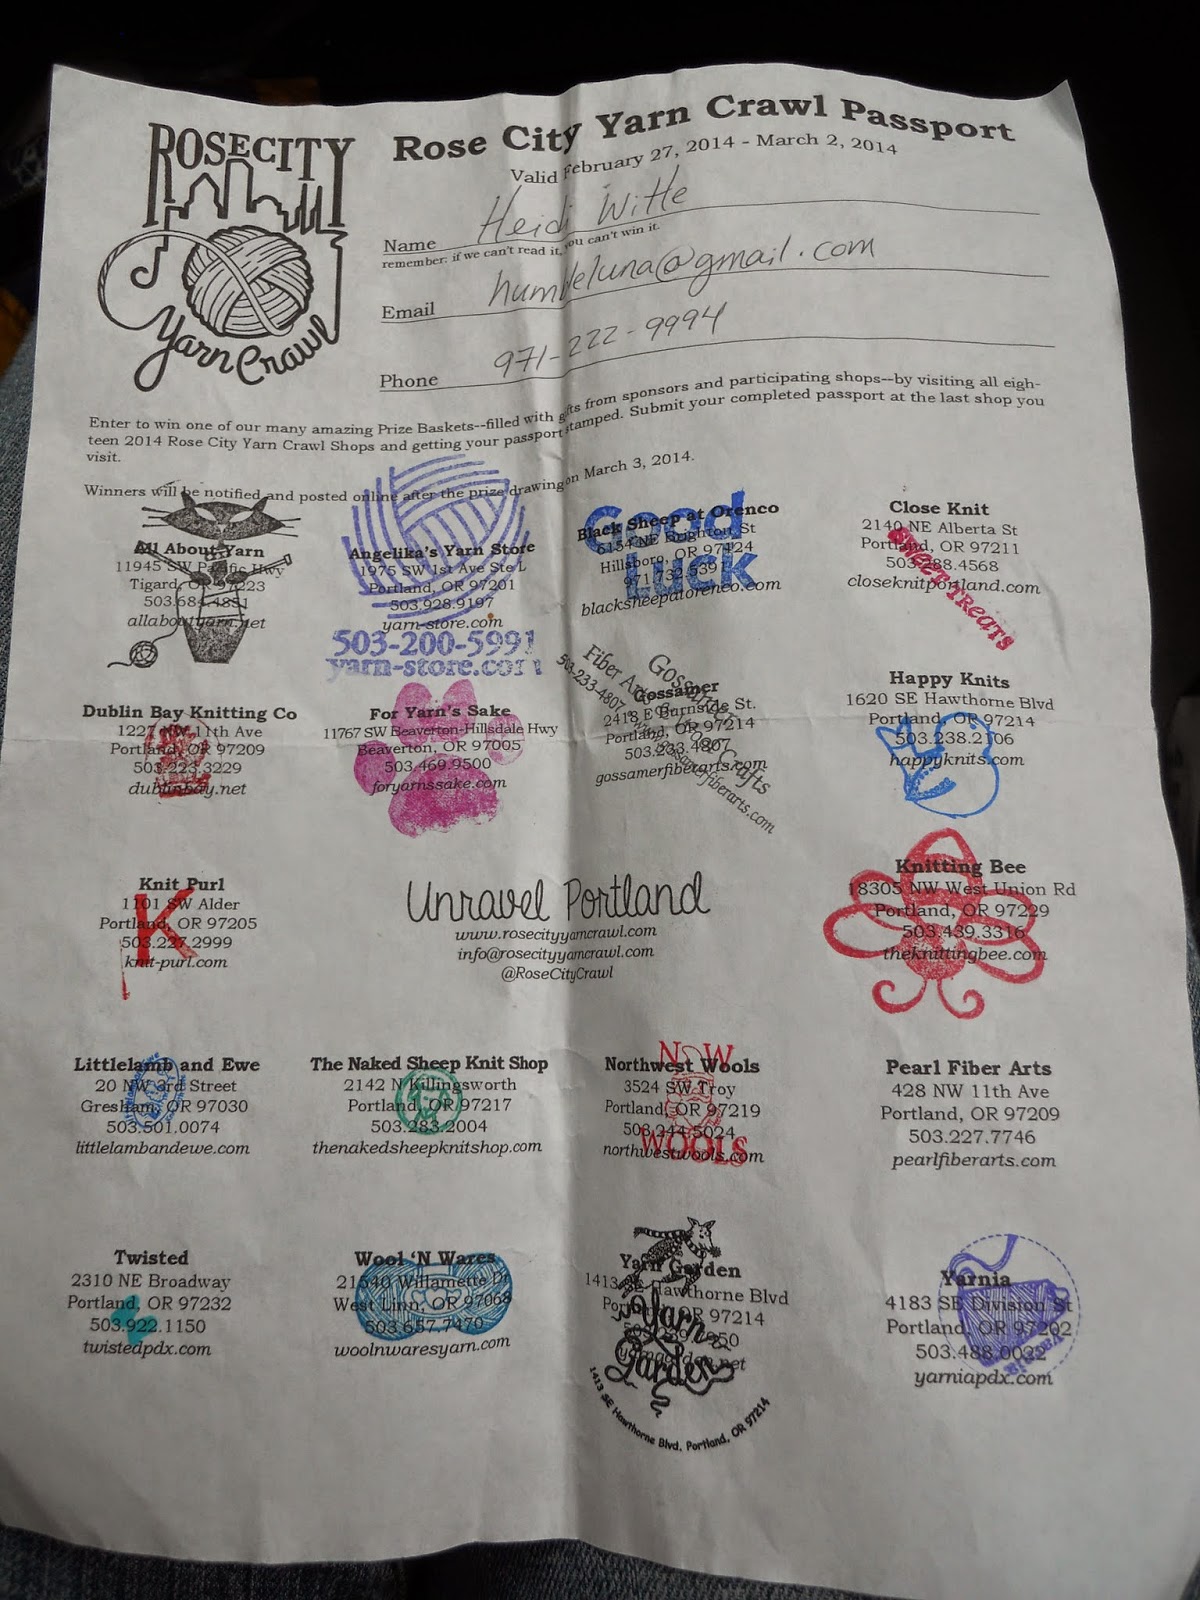 ROSECITY
Yarn Crawl
Rose City Yarn Crawl Passport
Valid February 27, 2014 - March 2, 2014
Name Heidi Witte
remember: if we can't read it, you can't win it.
Email humbleluna@gmail.com
Phone 971-222-9994
Enter to win one of our many amazing Prize Baskets--filled with gifts from sponsors and participating shops--by visiting all eigh-
teen 2014 Rose City Yarn Crawl Shops and getting your passport stamped. Submit your completed passport at the last shop you
visit.
Winners will be notified and posted online after the prize drawing on March 3, 2014.
All About Yarn
11945 SW Pacific Hwy
Tigard, OR 97223
503.684.4851
allaboutyarn.net
Angelika's Yarn Store
1975 SW 1st Ave Ste L
Portland, OR 97201
503.928.9197
yarn-store.com
503-200-5991
yarn-store.com
Black Sheep at Orenco
6154 NE Brighton St
Hillsboro, OR 97124
971.732.5391
blacksheepatorenco.com
Good
Luck
Close Knit
2140 NE Alberta St
Portland, OR 97211
503.288.4568
closeknitportland.com
SWEET TREATS
Dublin Bay Knitting Co
1227 NW 11th Ave
Portland, OR 97209
503.223.3229
dublinbay.net
For Yarn's Sake
11767 SW Beaverton-Hillsdale Hwy
Beaverton, OR 97005
503.469.9500
foryarnssake.com
Gossamer
2418 E Burnside St.
Portland, OR 97214
503.233.4807
gossamerfiberarts.com
Gossamer
Fiber Arts Crafts
503-233-4807
gossamerfiberarts.com
Happy Knits
1620 SE Hawthorne Blvd
Portland, OR 97214
503.238.2106
happyknits.com
Knit Purl
1101 SW Alder
Portland, OR 97205
503.227.2999
knit-purl.com
K
Unravel Portland
www.rosecityyarncrawl.com
info@rosecityyarncrawl.com
@RoseCityCrawl
Knitting Bee
18305 NW West Union Rd
Portland, OR 97229
503.439.3316
theknittingbee.com
Littlelamb and Ewe
20 NW 3rd Street
Gresham, OR 97030
503.501.0074
littlelambandewe.com
The Naked Sheep Knit Shop
2142 N Killingsworth
Portland, OR 97217
503.283.2004
thenakedsheepknitshop.com
Northwest Wools
3524 SW Troy
Portland, OR 97219
503.244.5024
northwestwools.com
NW
WOOLS
Pearl Fiber Arts
428 NW 11th Ave
Portland, OR 97209
503.227.7746
pearlfiberarts.com
Twisted
2310 NE Broadway
Portland, OR 97232
503.922.1150
twistedpdx.com
Wool 'N Wares
21540 Willamette Dr
West Linn, OR 97068
503.657.7470
woolnwaresyarn.com
Yarn Garden
1413 SE Hawthorne Blvd
Portland, OR 97214
yarngarden.net
Yarn
Garden
1413 SE Hawthorne Blvd, Portland, OR 97214
Yarnia
4183 SE Division St
Portland, OR 97202
503.488.0022
yarniapdx.com